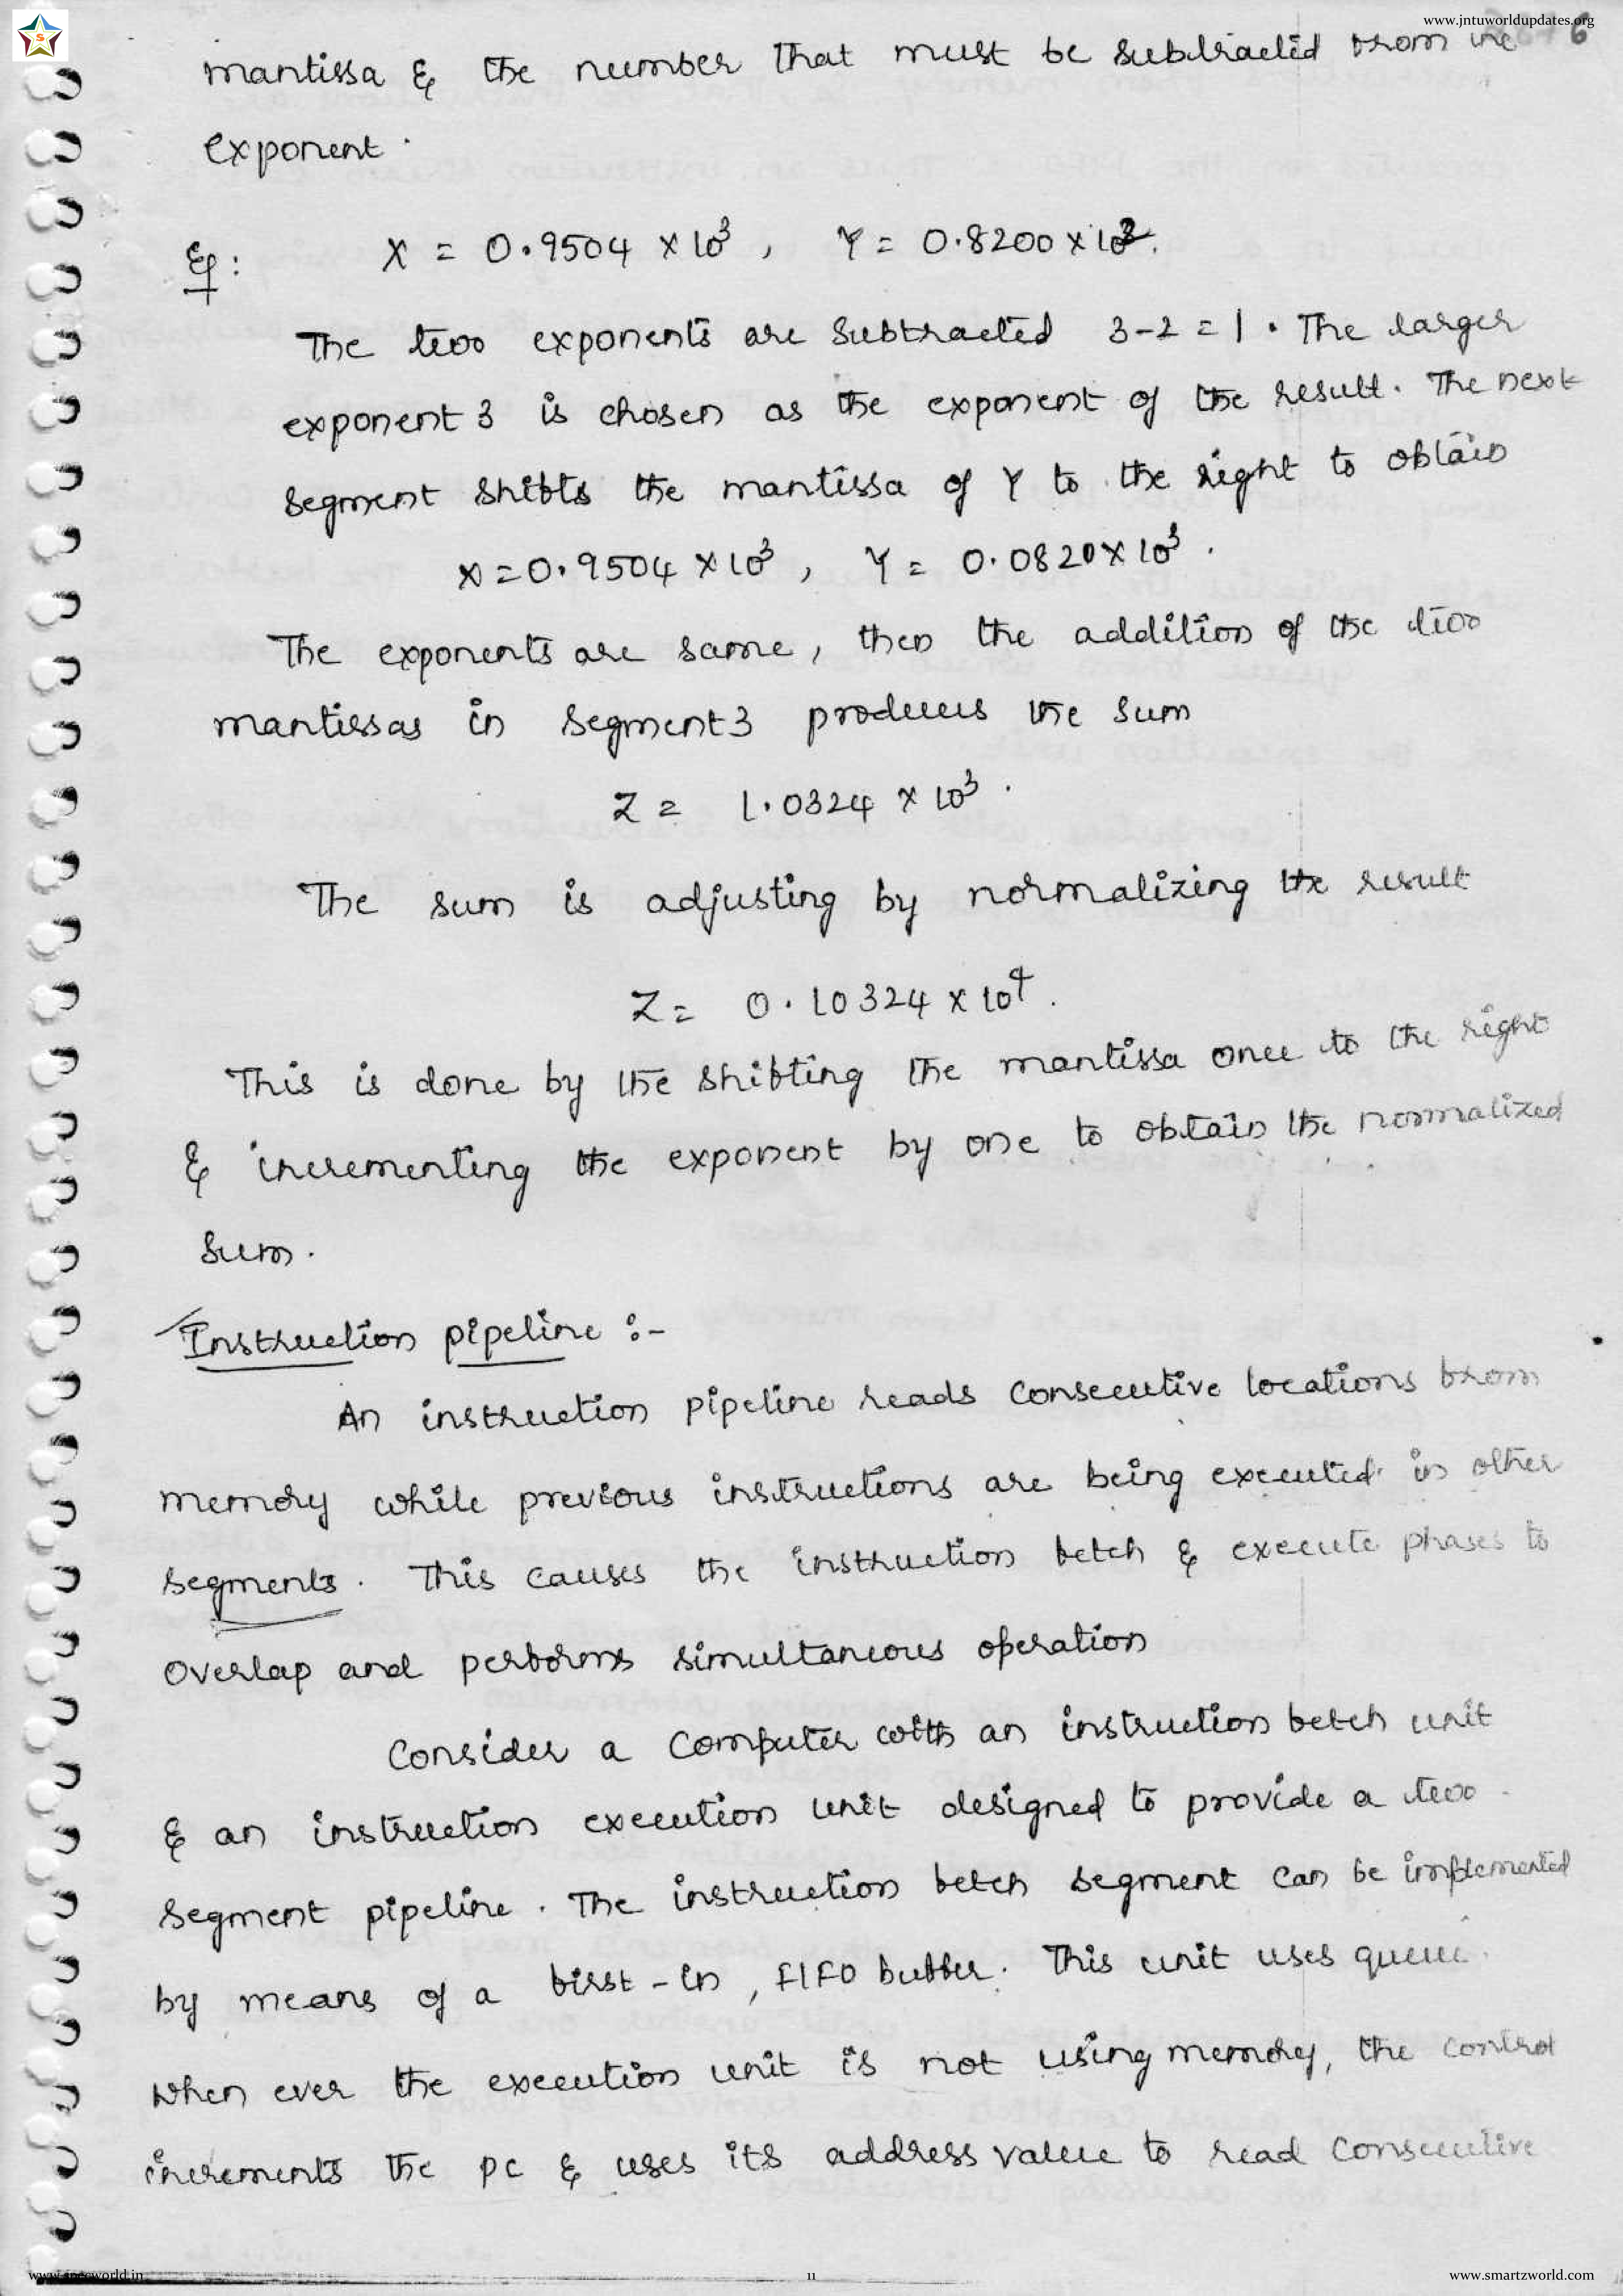 www.jntuworldupdates.org
mantissa & the number that must be subtracted from the
6
exponent.
Eg: X = 0.9504 × 10³, Y = 0.8200 × 10².
The two exponents are subtracted 3-2 = 1. The larger
exponent 3 is chosen as the exponent of the result. The next
segment shifts the mantissa of Y to the right to obtain
X = 0.9504 × 10³, Y = 0.0820 × 10³.
The exponents are same, then the addition of the two
mantissas in segment 3 produces the sum
Z = 1.0324 × 10³.
The sum is adjusting by normalizing the result
Z = 0.10324 × 10⁴.
This is done by the shifting the mantissa once to the right
& incrementing the exponent by one to obtain the normalized
sum.
Instruction pipeline :-
An instruction pipeline reads consecutive locations from
memory while previous instructions are being executed in other
segments. This causes the instruction fetch & execute phases to
overlap and performs simultaneous operation
Consider a computer with an instruction fetch unit
& an instruction execution unit designed to provide a two
segment pipeline. The instruction fetch segment can be implemented
by means of a first-in, FIFO buffer. This unit uses queue.
When ever the execution unit is not using memory, the control
increments the pc & uses its address value to read consecutive
11
www.smartzworld.com